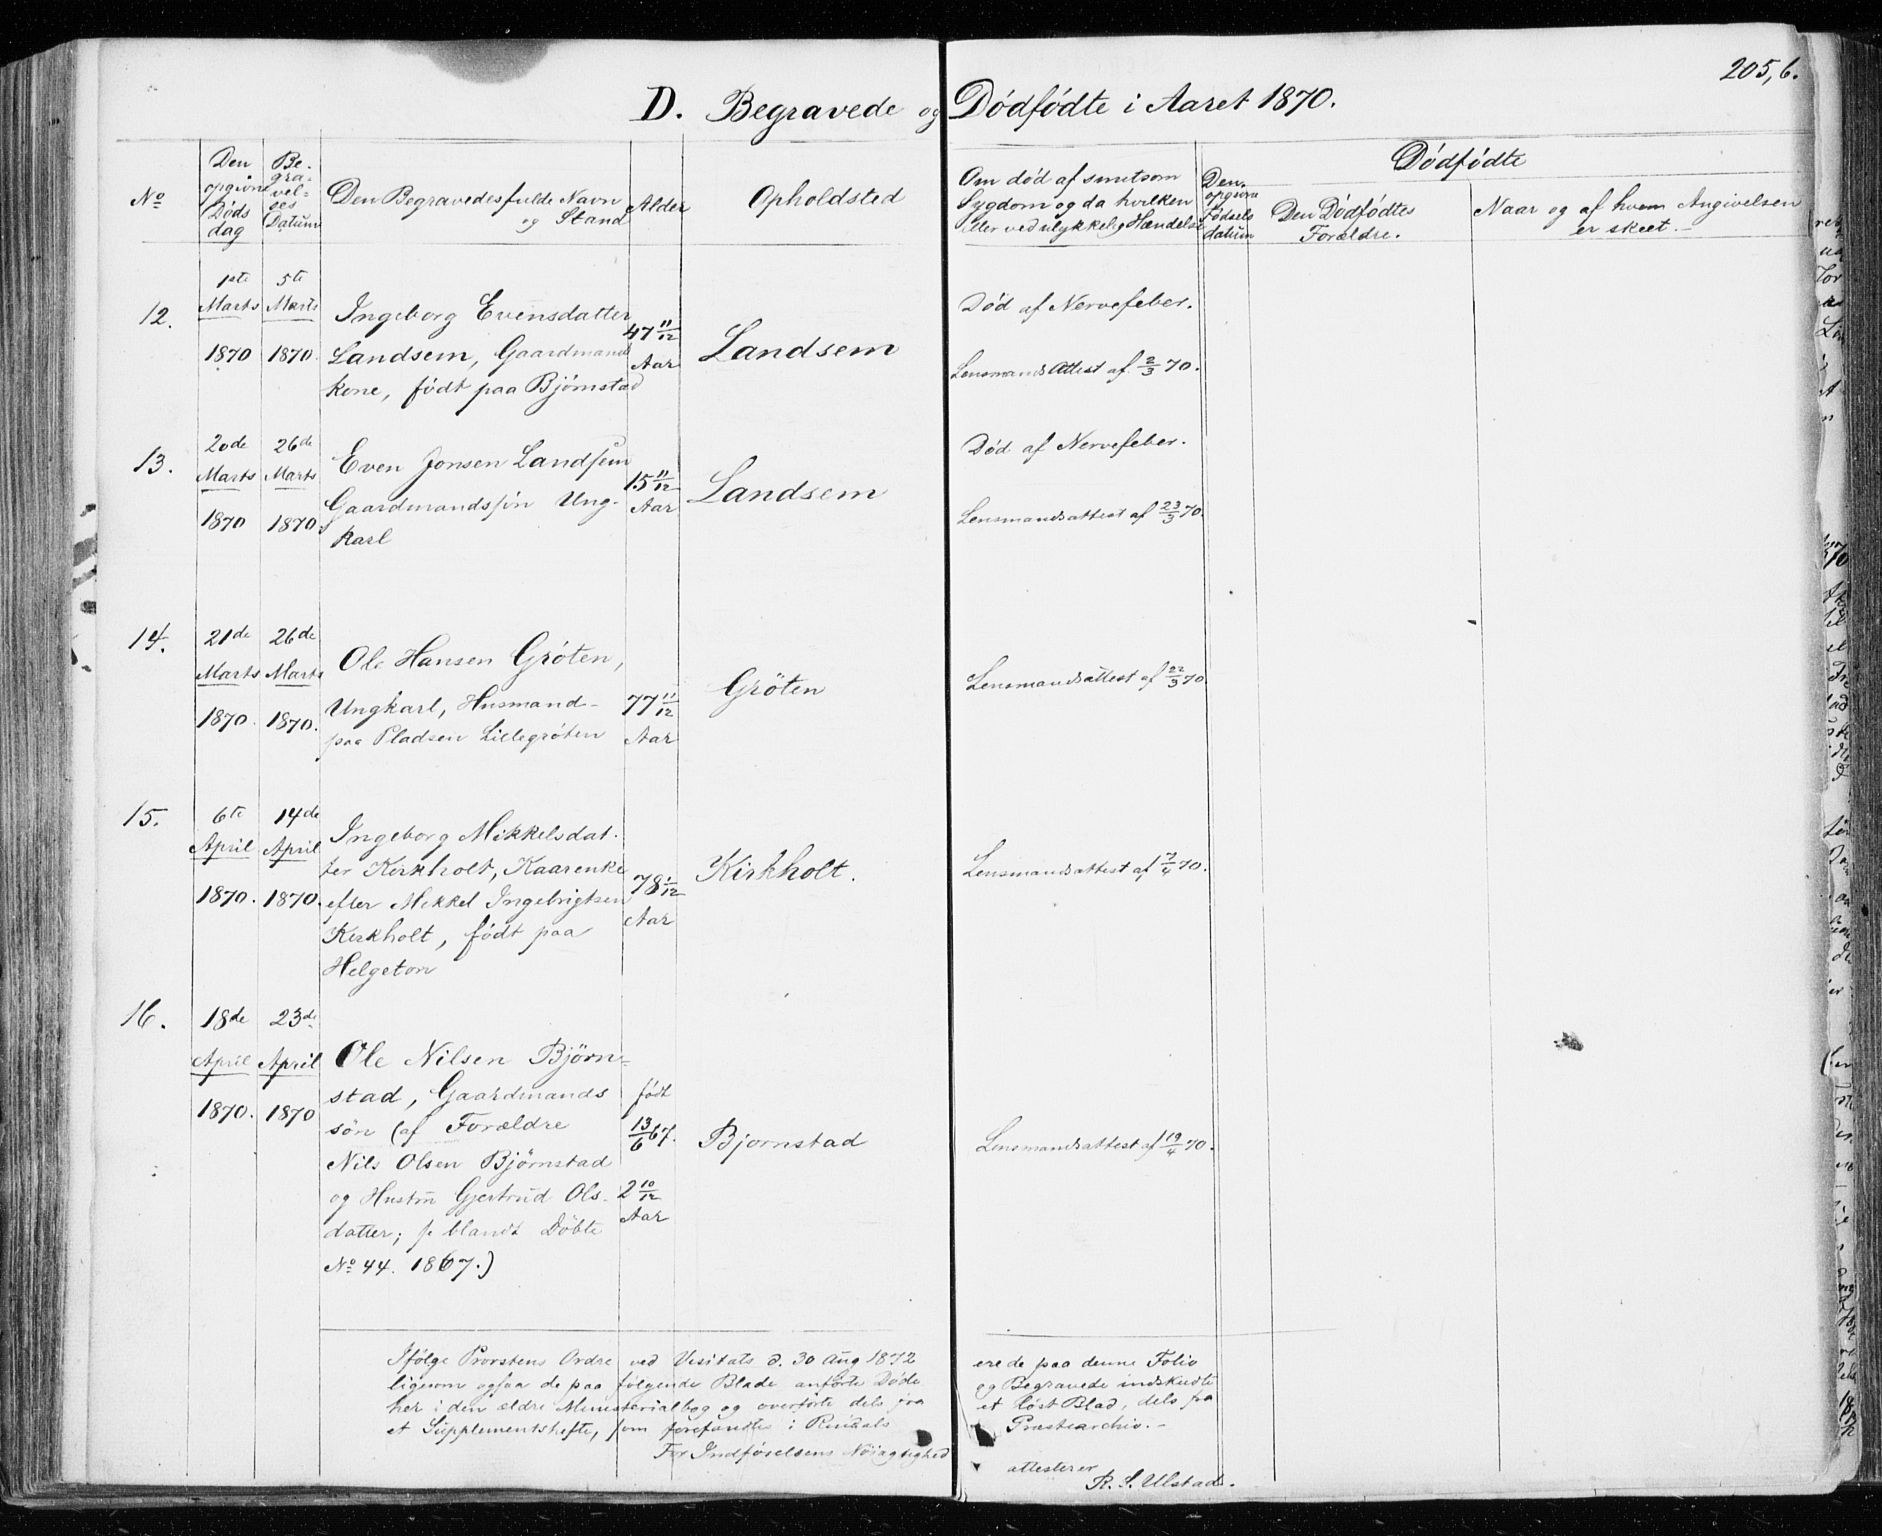 205,6.
D. Begravede og Dødfødte i Aaret 1870.
No
Den opgivne Døds dag
Be-gra-vel-ses Datum
Den Begravedes fulde Navn og Stand
Alder
Opholdsted
Om død af smitsom Sygdom og da hvilken eller ved ulykkelig Hændelse
Dødfødte
Den opgivne Fødsels datum
Den Dødfødtes Forældre.
Naar og af hvem Angivelsen er skeet.
12.
1ste Marts 1870
5te Marts 1870
Ingeborg Evensdatter
Landsem, Gaardmands
kone, født paa Bjørnstad
47 11/12 Aar
Landsem
Død af Nervefeber.
Lensmands Attest af 2/3 70.
13.
20de Marts 1870
26de Marts 1870
Even Jonsen Landsem
Gaardmandssøn Ung-
karl
15 11/12 Aar
Landsem
Død af Nervefeber.
Lensmandsattest af 23/3 70.
14.
21de Marts 1870.
26de Marts 1870.
Ole Hansen Gröten,
Ungkarl, Husmand
paa Pladsen Lillegröten
77 11/12 Aar
Gröten
Lensmandsattest af 22/3 70
15.
6te April 1870.
14de April 1870.
Ingeborg Mikkelsdat-
ter Kirkholt, Kaarenke
efter Mikkel Ingebrigtsen
Kirkholt, født paa
Helgeton
78 1/12 Aar
Kirkholt.
Lensmandsattest af 7/4 70.
16.
18de April 1870.
23de April 1870
Ole Nilsen Björn-
stad, Gaardmands
sön (af Forældre
Nils Olsen Björnstad
og Hustru Gjertrud Ols-
datter; se blandt Döbte
No 44. 1867.)
født 13/6 67.
2 10/12 Aar
Bjornstad
Lensmandsattest af 19/4 70.
Ifölge Provstens Ordre ved Visitats d. 30 Aug 1872 ere de paa denne Folio
ligesom ogsaa de paa følgende Blade anførte Døde og Begravede indskudte
her i den ældre Ministerialbog og overførte dels fra et løst Blad, dels fra
et Supplementshefte, som forefandtes i Rindals Præstearchiv.
For Indførelsens Nøiagtighed attesterer
R. S. Ulstad.